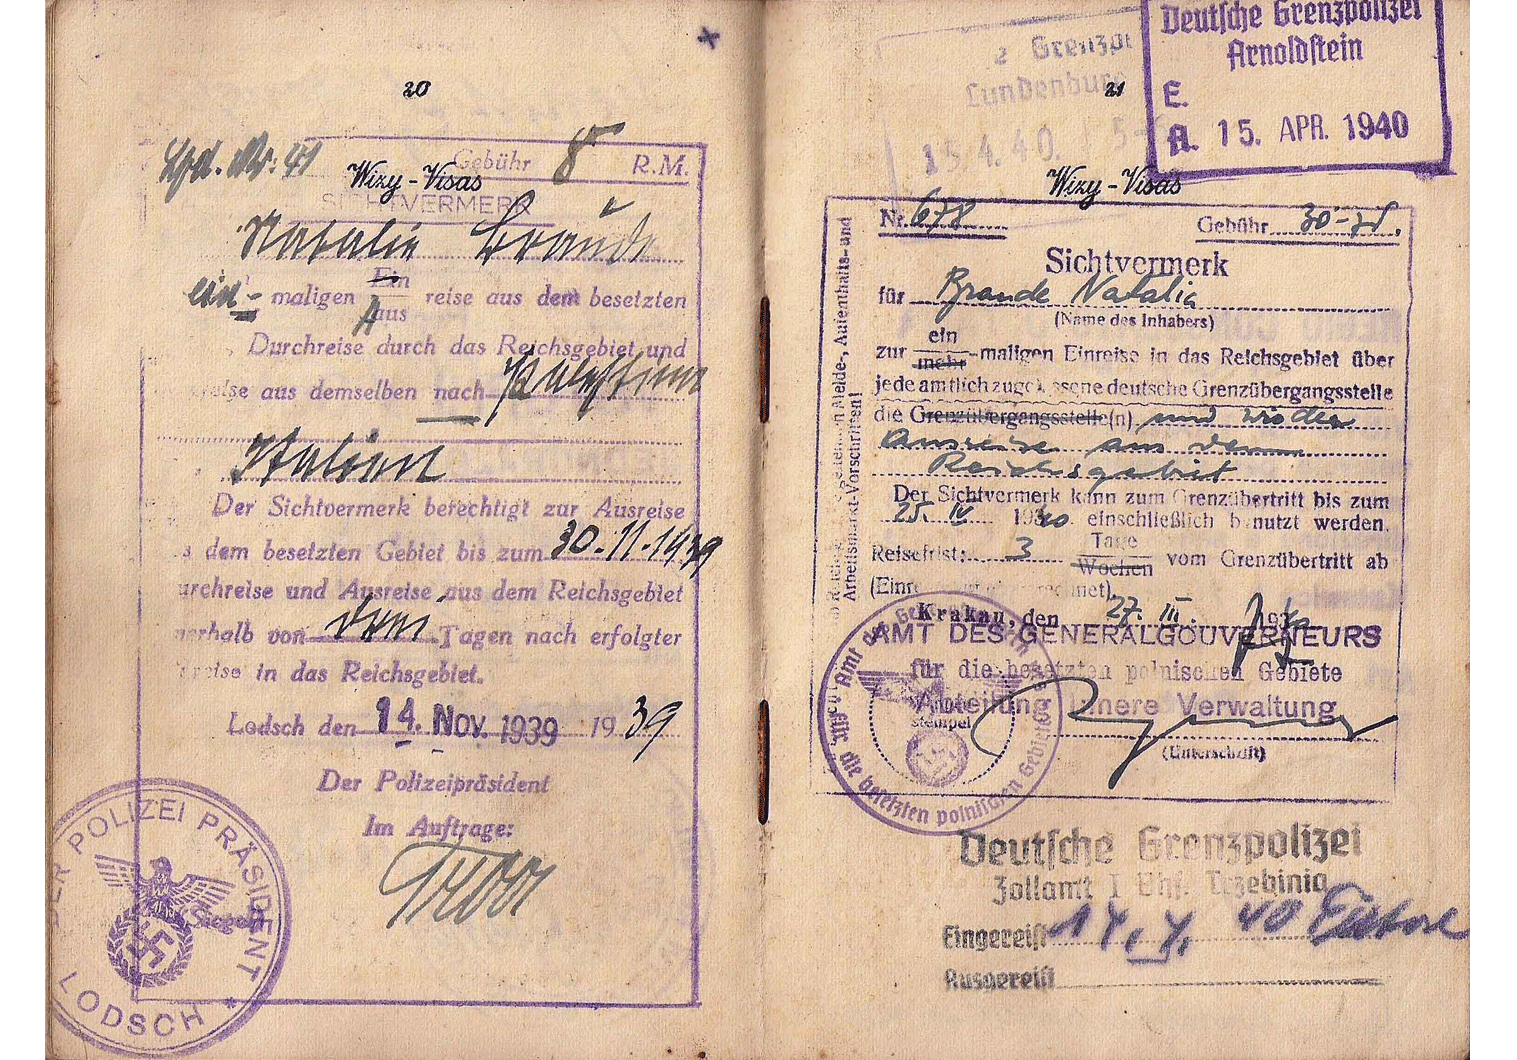 20
Lfd. Nr: 41
Gebühr 8 R.M.
Wizy-Visas
SICHTVERMERK
Natalie Braude
ein- maligen Ein reise aus dem besetzten
aus
Durchreise durch das Reichsgebiet und
reise aus demselben nach Palästina
Italien
Der Sichtvermerk berechtigt zur Ausreise
s dem besetzten Gebiet bis zum 30.11.1939
urchreise und Ausreise aus dem Reichsgebiet
nerhalb von drei Tagen nach erfolgter
reise in das Reichsgebiet.
Lodsch den 14. Nov. 1939 1939
Der Polizeipräsident
Im Auftrage:
DER POLIZEI PRÄSIDENT
(Siegel)
LODSCH *
e Grenzpo
Lundenburg
15.4.40.
Deutsche Grenzpolizei
Arnoldstein
E.
A. 15. APR. 1940
21
Wizy-Visas
Nr. 678 Gebühr
Sichtvermerk
für Braude Natalia
(Name des Inhabers)
ein
zur mehr-maligen Einreise in das Reichsgebiet über
jede amtlich zugelassene deutsche Grenzübergangsstelle
die Grenzübergangsstelle(n) und wieder
Ausreise aus dem
Reichsgebiet
Der Sichtvermerk kann zum Grenzübertritt bis zum
25. IV 1940 einschließlich benutzt werden.
Reisefrist: 3 Tage
Wochen vom Grenzübertritt ab
Melde-, Aufenthalts- und
Arbeitsmarkt-Vorschriften!
Krakau, den 27. III. 1940
AMT DES GENERALGOUVERNEURS
für die besetzten polnischen Gebiete
Abteilung Innere Verwaltung
stempel
(Unterschrift)
die besetzten polnischen Gebiete
Deutsche Grenzpolizei
Zollamt I Bhf. Trzebinia
Eingereist 14. 4. 40
Ausgereist